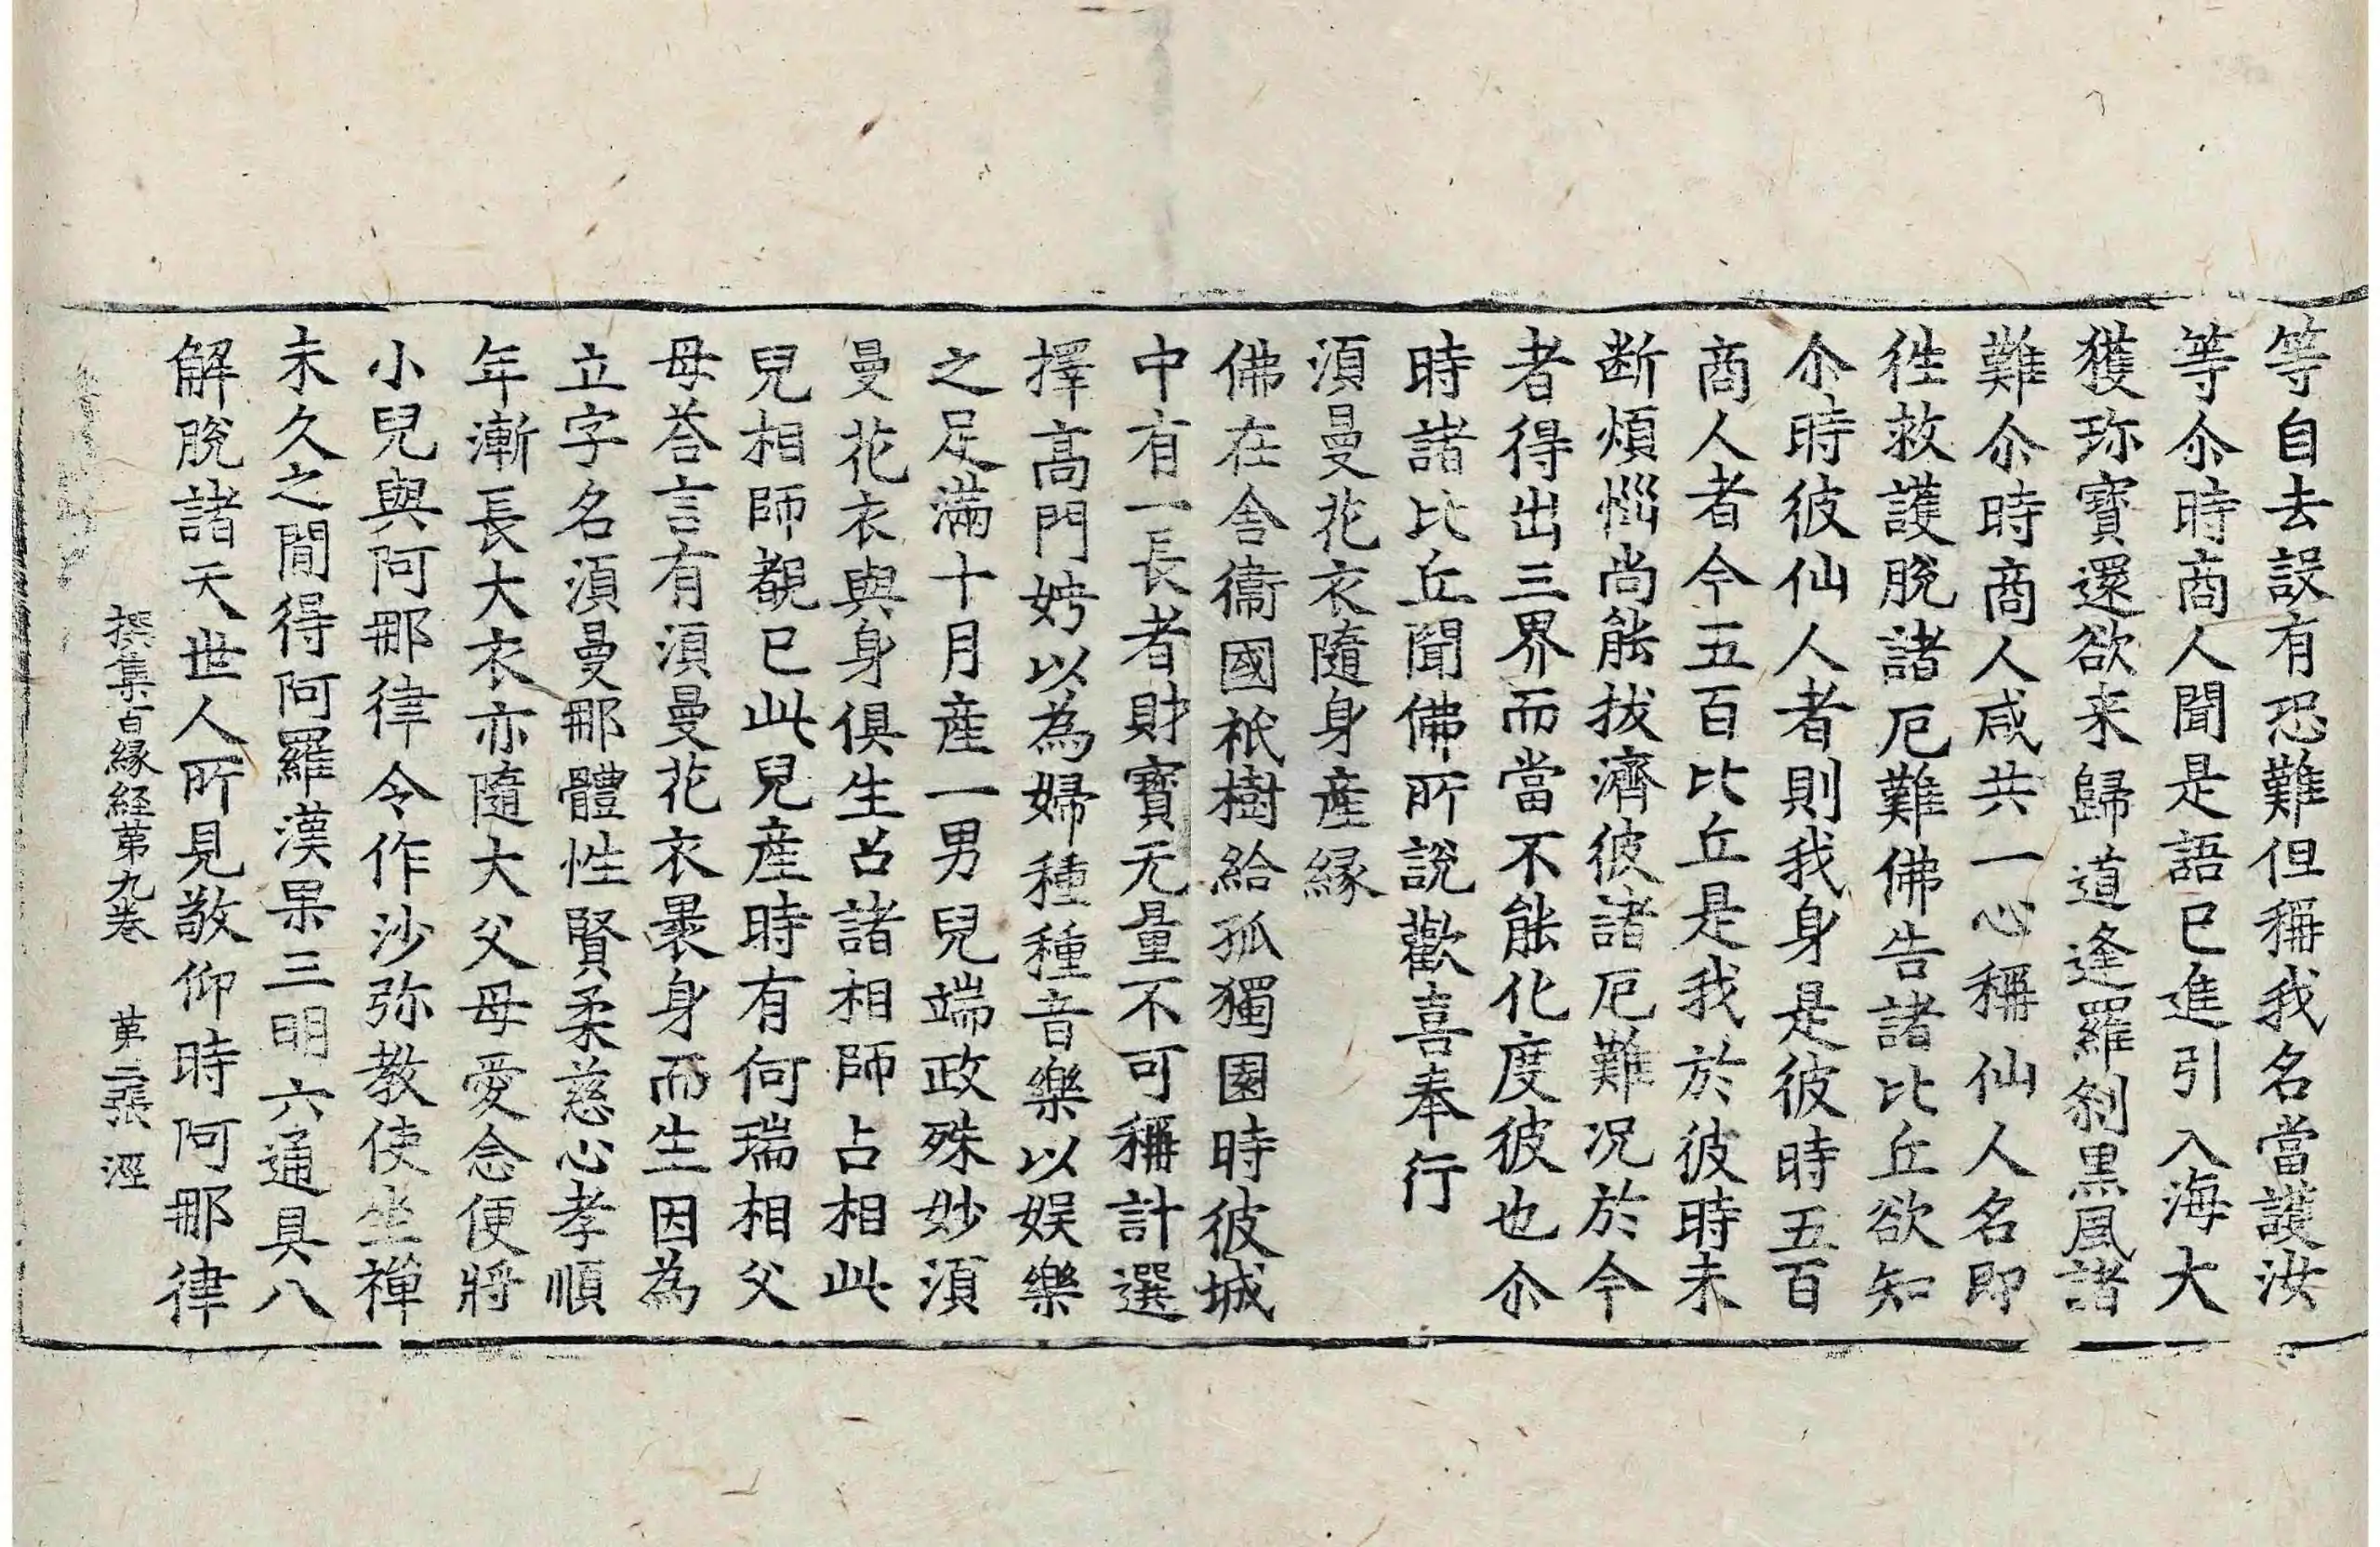 等自去設有恐難但稱我名當護汝
等尒時商人聞是語已進引入海大
獲珎寶還欲来歸道逢羅刹黒風諸
難尒時商人咸共一心稱仙人名即
徃救護脫諸厄難佛告諸比丘欲知
尒時彼仙人者則我身是彼時五百
商人者今五百比丘是我於彼時未
断煩惱尚能拔濟彼諸厄難况於今
者得出三界而當不能化度彼也尒
時諸比丘聞佛所說歡喜奉行
須曼花衣隨身産縁
佛在舍衞國祇樹給孤獨園時彼城
中有一長者財寶无量不可稱計選
擇高門娉以為婦種種音樂以娱樂
之足滿十月産一男兒端政殊妙須
曼花衣與身俱生召諸相師占相此
兒相師覩已此兒産時有何瑞相父
母荅言有須曼花衣褁身而生因為
立字名須曼那體性賢柔慈心孝順
年漸長大衣亦隨大父母愛念便將
小兒與阿那律令作沙弥教使坐禪
未久之間得阿羅漢果三明六通具八
解脫諸天世人所見敬仰時阿那律
撰集百縁経苐九卷 苐二張 涇